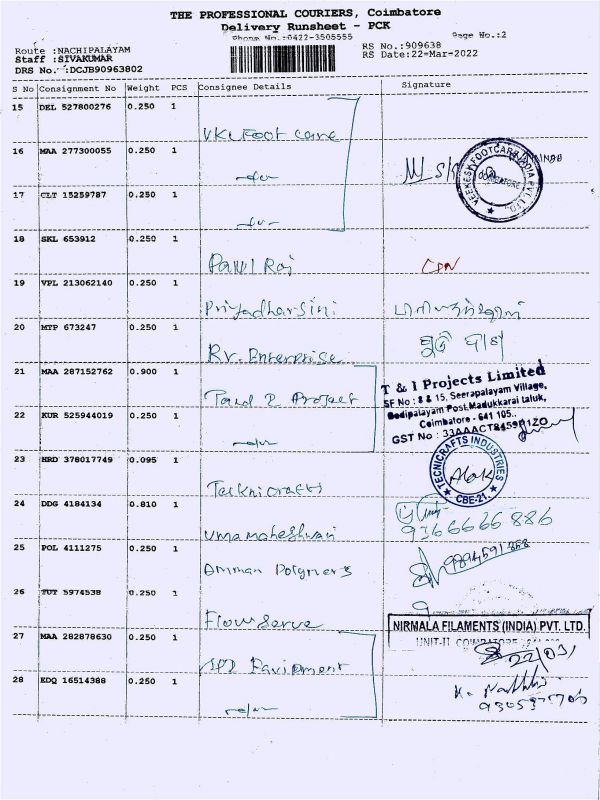 THE PROFESSIONAL COURIERS, Coimbatore
Delivery Runsheet - PCK
Phone No.:0422-3505555
Page No.:2
Route :NACHIPALAYAM
Staff :SIVAKUMAR
DRS No.:DCJB90963802
RS No.:909638
RS Date:22-Mar-2022
S No Consignment No Weight PCS Consignee Details Signature
15 DEL 527800276 0.250 1
VKC Foot Care
16 MAA 277300055 0.250 1
VEEKESY FOOTCARE INDIA PVT. LTD.
COIMBATORE
17 CLT 15259787 0.250 1
18 SKL 653912 0.250 1
Paul Raj
19 VPL 213062140 0.250 1
Priyadharsini
20 MTP 673247 0.250 1
Rv. Enterprise
21 MAA 287152762 0.900 1
T and I Project
T & I Projects Limited
SF No : 8 & 15, Seerapalayam Village,
Bodipalayam Post, Madukkarai taluk,
Coimbatore - 641 105.
GST No :
22 KUR 525944019 0.250 1
23 HRD 378017749 0.095 1
Tecknicrafts
TECNICRAFTS INDUSTRIES
CBE-21.
24 DDG 4184134 0.810 1
Umamaheshwari
9366666886
25 POL 4111275 0.250 1
Amman Polymers
26 TUT 5974538 0.250 1
Flowserve
NIRMALA FILAMENTS (INDIA) PVT. LTD.
UNIT-II
27 MAA 282878630 0.250 1
22/03/
28 EDQ 16514388 0.250 1